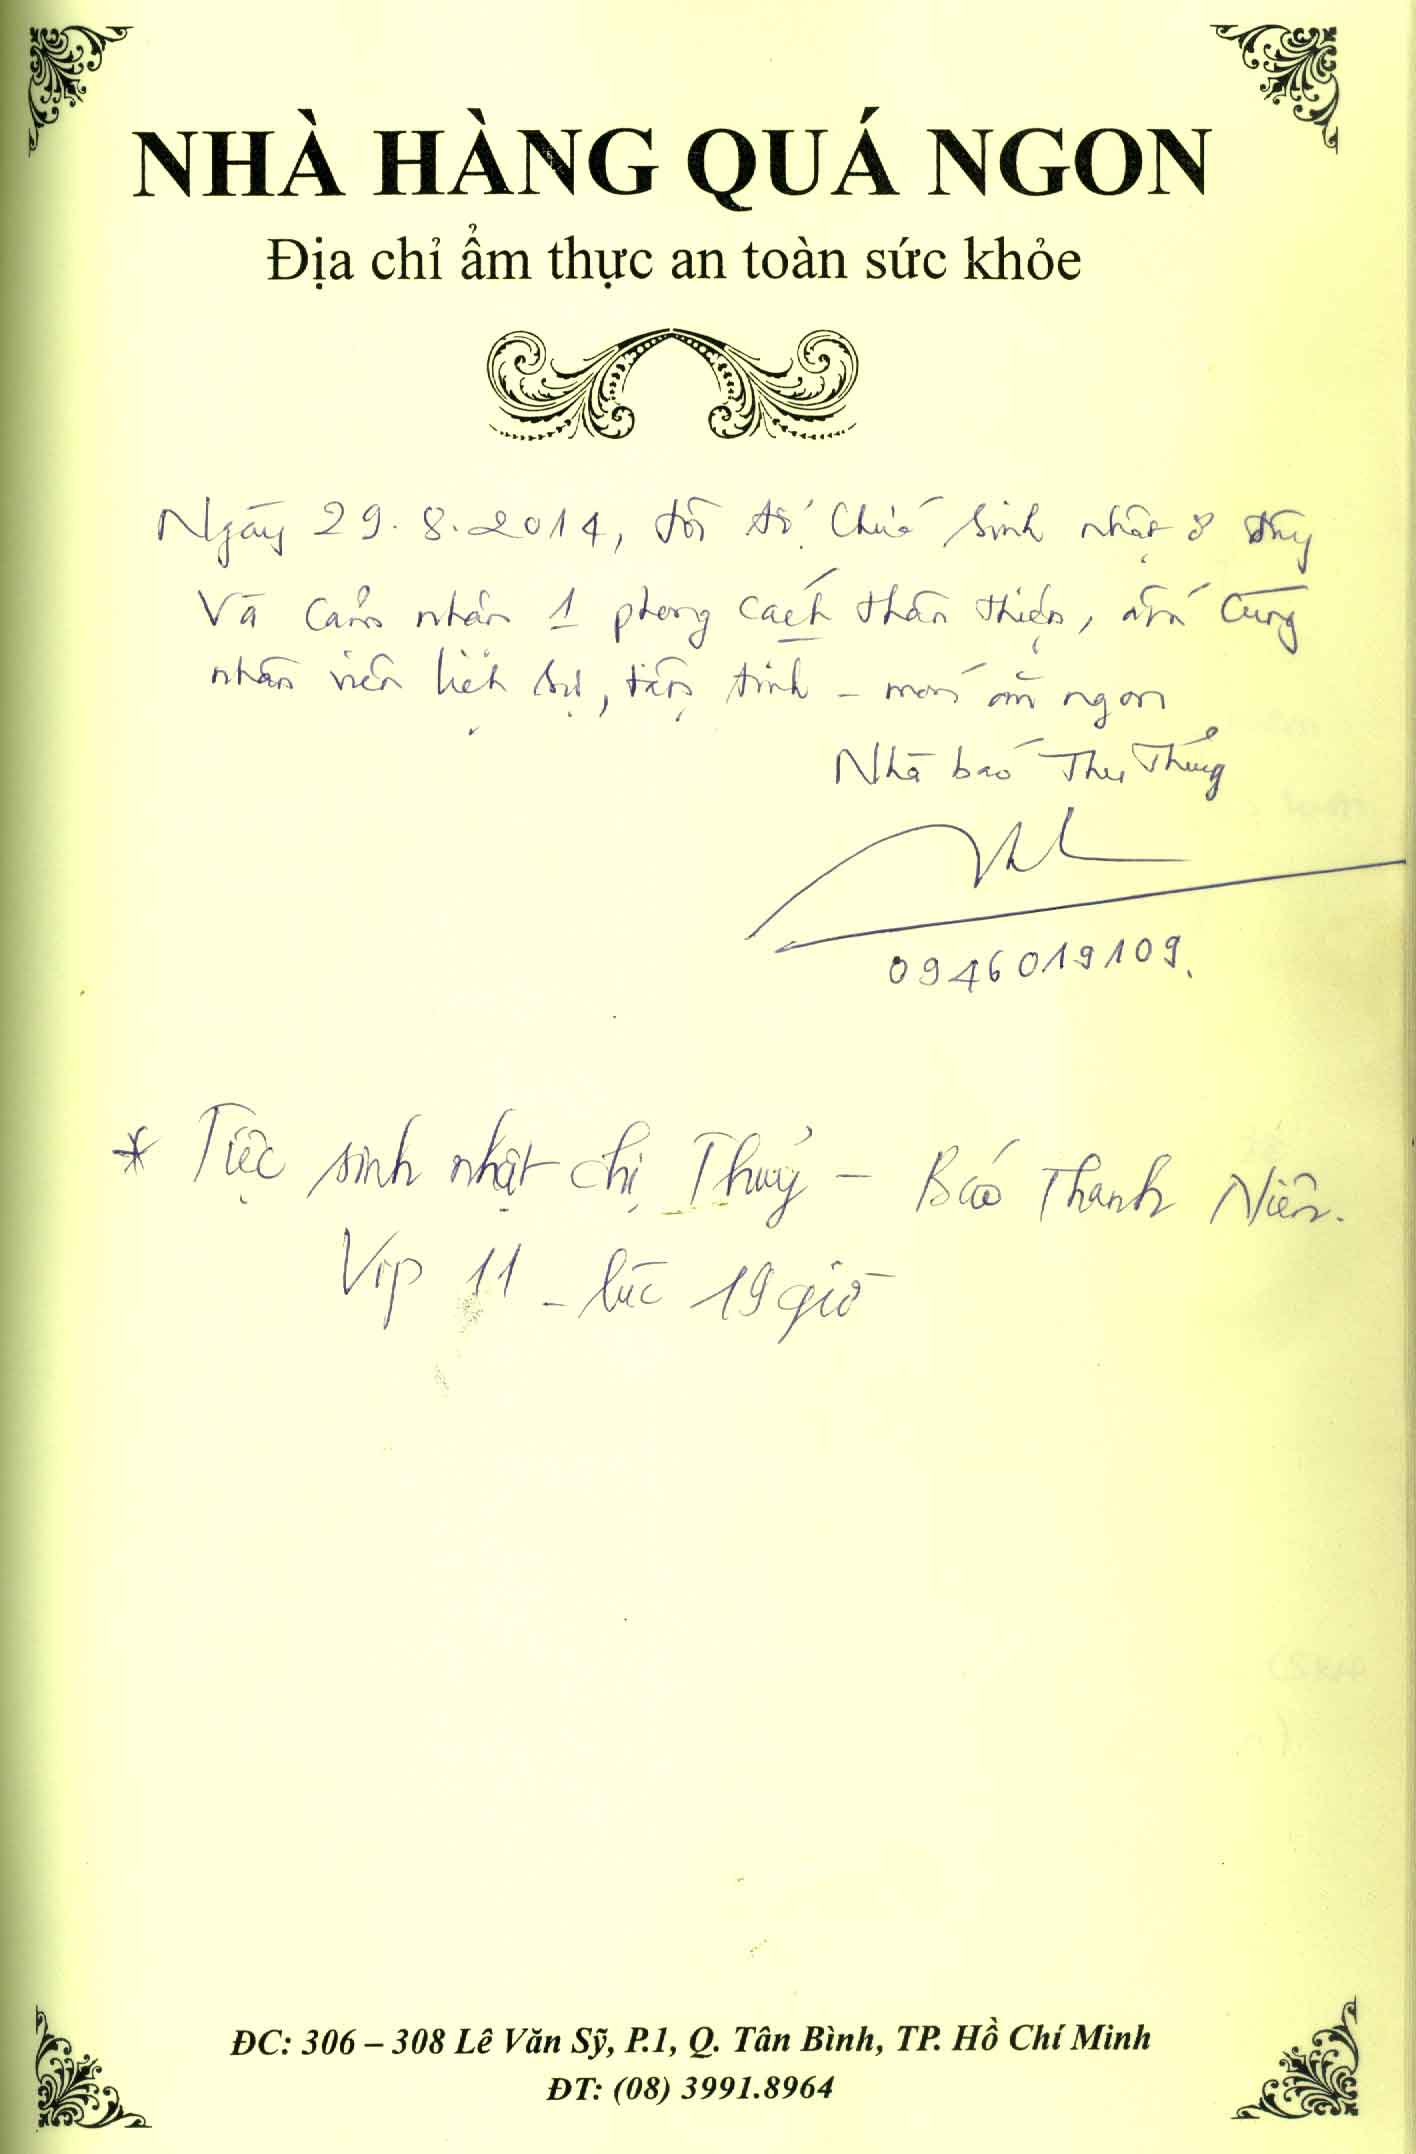 NHÀ HÀNG QUÁ NGON
Địa chỉ ẩm thực an toàn sức khỏe
Ngày 29.8.2014, tôi tổ chức sinh nhật ở đây
Và cảm nhận 1 phong cách thân thiện, ấm cúng
nhân viên lịch sự, tận tình - món ăn ngon
Nhà báo Thu Thủy
0946019109.
* Tiệc sinh nhật chị Thuỷ - Báo Thanh Niên.
Vip 11 - lúc 19 giờ
ĐC: 306 – 308 Lê Văn Sỹ, P.1, Q. Tân Bình, TP. Hồ Chí Minh
ĐT: (08) 3991.8964